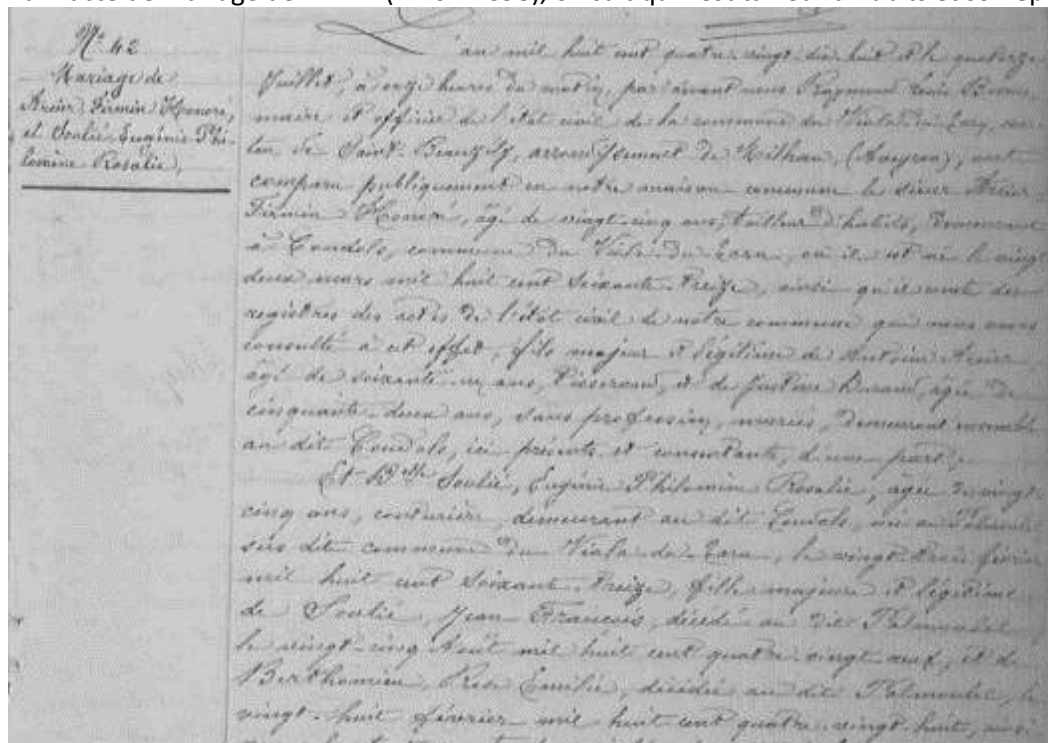 N° 42
Mariage de
Firmin Honoré,
et Soulié, Eugénie Phi-
lomène Rosalie,
L'an mil huit cent quatre-vingt-dix-huit et le quatorze
Juillet, à onze heures du matin, par devant nous Raymond Louis
maire et officier de l'état civil de la commune du Viala du Tarn, can-
ton de Saint-Beauzély, arrondissement de Milhau, (Aveyron), ont
comparu publiquement en notre maison commune le sieur
Firmin Honoré, âgé de vingt-cinq ans, tailleur d'habits, demeurant
à Coudols, commune du Viala du Tarn, où il est né le vingt
deux mars mil huit cent soixante-treize, ainsi qu'il conste des
registres des actes de l'état civil de notre commune que nous avons
consulté à cet effet, fils majeur et légitime de Antoine
âgé de soixante ans, tisserand, et de Justine Durand, âgée de
cinquante-deux ans, sans profession, mariés, demeurant ensemble
au dit Coudols, ici présents et consentants, d'une part;
Et Dlle Soulié, Eugénie Philomène Rosalie, âgée de vingt
cinq ans, couturière, demeurant au dit Coudols, née a
sus dite commune du Viala du Tarn, le vingt-trois février
mil huit cent soixante-treize, fille majeure et légitime
de Soulié, Jean François, décédé au dit
le vingt-cinq Août mil huit cent quatre-vingt-neuf, et de
Berthomieu, Rose Emilie, décédée au dit le
vingt-huit février mil huit cent quatre-vingt-huit,